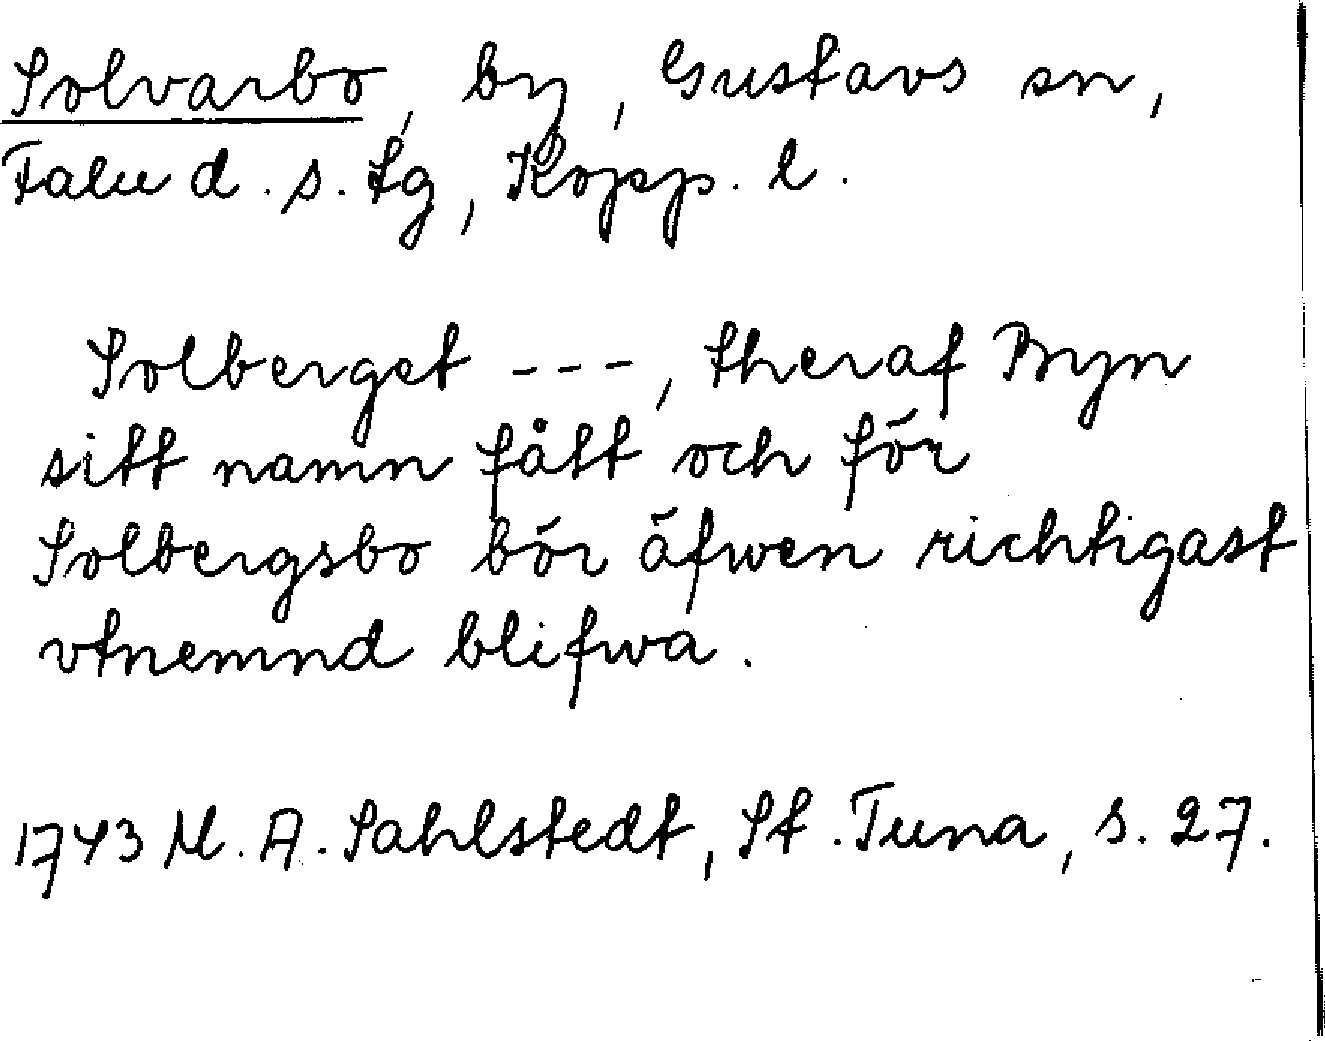 Solvarbo, by, Gustavs sn,
Falu d. s. tg, Kopp. l.
Solberget ---, theraf Byn
sitt namn fått och för
Solbergsbo bör äfwen richtigast
vtnemnd blifwa.
1743 M. A. Sahlstedt, St. Tuna, s. 27.